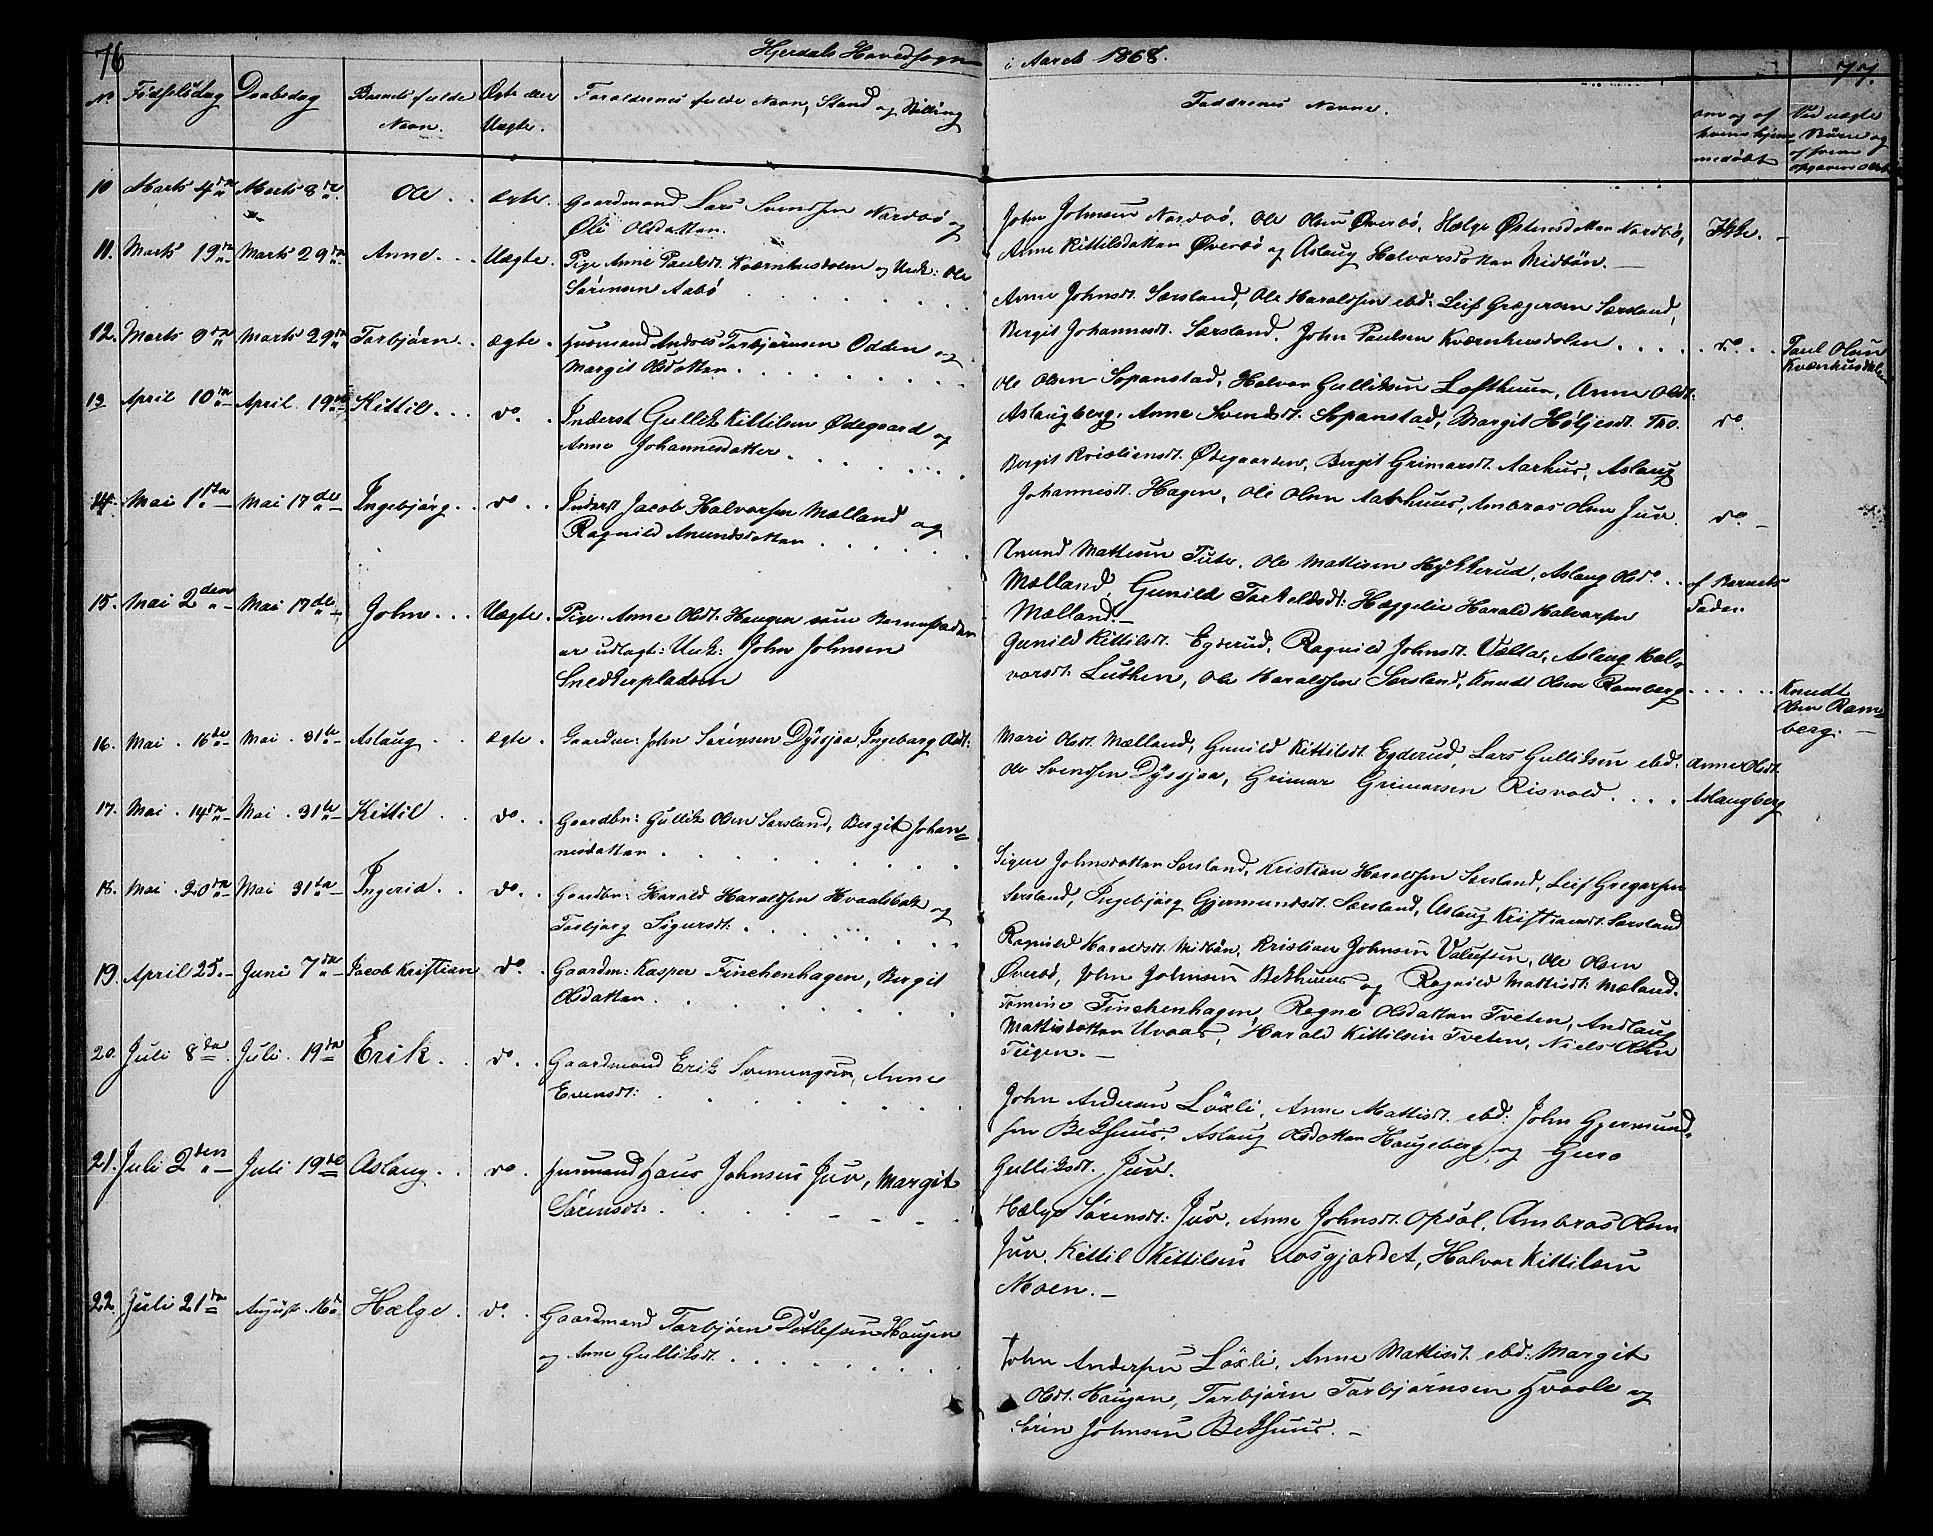 76 Hjerdals Hovedsogn i Aaret 1868. 77.
No Fødselsdag Daabsdag Barnets fulde Navn. Ægte eller Uægte. Forældrenes fulde Navn, Stand og Stilling
Faddernes Navne. om og af hvem hjemmedøbt Ved uægte Børn og af hvem opgivne
10 Marts 4de Marts 8de Ole ægte. Gaardmand Lars Svendsen Nordbø og
Øli Olsdatter.
John Johnsen Nordbø, Ole Olsen Øverbø, Hælge Østensdatter Nordbø,
Anne Kittilsdatter Øverbø og Aslaug Halvorsdatter Midbøn. Ikke.
11. Marts 19de Marts 29de Anne Uægte. Pige Anne Paulsdt. Kværnhusdalen og Unk: Ole
Sørensen Aabø
Anne Johnsdt. Sørsland, Ole Haraldsen ebd: Leif Grægersen Sørsland,
Bergit Johannesdt. Sørsland. John Paulsen Kværnhusdalen do. Paul Olsen
Kværnhusdalen
12. Marts 9de Marts 29de Torbjørn ægte. Husmand Andres Torbjørnsen Odden og
Margit Olsdatter
Ole Olsen Sopanstad, Halvor Gulliksen Lofthuus, Anne Olsdt.
Aslaugberg, Anne Svendsdt. Sopanstad, Margit Høljesdt. Tho. do.
13 April 10de April 19de Kittil do. Inderst Gullik Kittilsen Ødegaard og
Anne Johannesdatter
Bergit Kristiensdt. Ødegaarden, Bergit Grimarsdt. Aarhus, Aslaug
Johannesdt. Hagen, Ole Olsen Aarhuus, Ambros Olsen Juv. do.
14. Mai 1ste Mai 17de Ingebjørg do Inderst Jacob Halvorsen Mælland og
Ragnild Anundsdatter
Anund Mattisen Tute, Ole Mattisen Hykkerud, Aslaug Olsd. af Barnets
Mælland, Gunild Torkildsdt: Hæggelie Harald Halvorsen Fader.
Mælland.
15. Mai 2den Mai 17de John Uægte. Pige: Anne Olsdt. Haugen som Barnefader
er udlagt: Unk: John Johnsen
Snedkerpladsen
Gunild Kittilsdt. Egderud, Ragnild Johnsdt. Vælta, Aslaug Hal-
vorsdt: Luthen, Ole Haraldsen Sørsland, Knudt Olsen Ramberg Knudt
Olsen Ram-
berg.
16. Mai 16de Mai 31te Aslaug ægte. Gaardm: John Sørensen Dysjaa, Ingeborg Olsdt:
Mari Olsdt. Mælland, Gunild Kittilsdt. Egderud, Lars Gulliksen ebd: Anne Olsdt.
Ole Svendsen Dysjaa, Grimar Grimarsen Risvold Aslaugberg
17. Mai 14de Mai 31te Kittil do. Gaardbr: Gullik Olsen Sørsland, Bergit Johan-
nesdatter
Signe Johnsdatter Sørsland, Kristian Haraldsen Sørsland, Leif Gregarsen
Sørsland, Ingebjørg Gjermundsdt. Sørsland, Aslaug Kristiansdt. Sørsland
18. Mai 20de Mai 31te Ingerid do. Gaardbr: Harald Haraldsen Hvaalsbak og
Torbjørg Sigursdt:
Ragnild Haraldsdt. Midbøn, Kristian Johnsen Valufsen, Ole Olsen
Øverbø, John Johnsen Bekhuus og Ragnild Mattisdt: Mæland.
19. April 25. Juni 7de Jacob Kristian do. Gaardm: Kasper Finchenhagen, Bergit
Olsdatter
Tomine Finchenhagen, Ragne Olsdatter Tveten, Andlaug
Mattisdatter Uvaas, Harald Kittilsen Tveten, Niels Olsen
Teigen.
20. Juli 8de Juli 19de Erik do. Gaardmand Erik Svenungsen, Anne
Evensdt:
John Andersen Løxli, Anne Mattisdt. ebd: John Gjermund-
sen Bekhuus, Aslaug Olsdatter Haugeberg, og Guro
Gulliksdt. Juv.
21. Juli 2den Juli 19de Aslaug do. Husmand Hans Johnsen Juv, Margit
Sørensdt:
Hælge Sørensdt: Juv, Anne Johnsdt. Opsal, Ambros Olsen
Juv. Kittil Kittilsen Rosgjordet, Halvor Kittilsen
Moen.
22. Juli 21de August 16de Hælge do. Gaardmand Torbjørn Detlefsen Haugen
og Anne Gulliksdt.
John Andersen Løxli, Anne Mattisdt. ebd: Margit
Olsdt. Haugen, Torbjørn Torbjørnsen Hvaale og
Søren Johnsen Bekhuus.